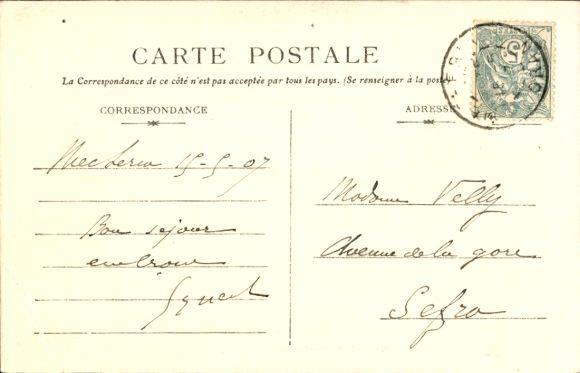 CARTE POSTALE
La Correspondance de ce côté n'est pas acceptée par tous les pays. (Se renseigner à la poste
CORRESPONDANCE
ADRESSE
Mecheria 15-5-07
Bon séjour
Madame Velly
Avenue de la gare
Sefra
ORAN